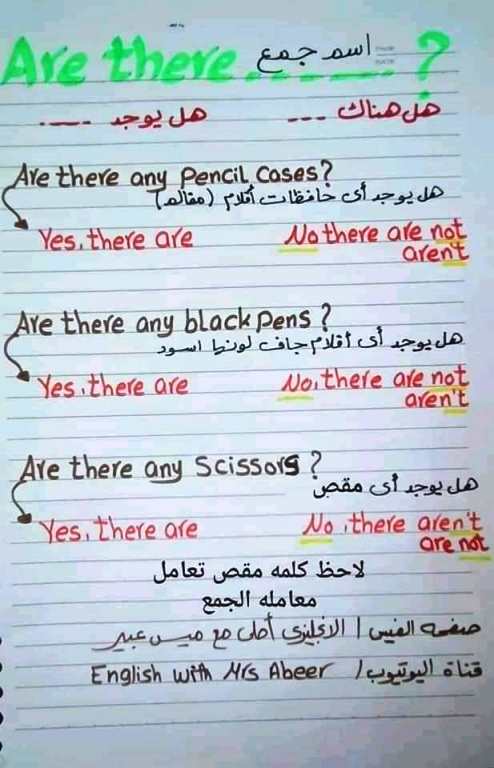 Are there اسم جمع ........ ?
هل هناك --- هل يوجد ----.
Are there any pencil cases?
هل يوجد أى حافظات أقلام (مقالم)
Yes, there are No there are not
aren't
Are there any black pens ?
هل يوجد أى أقلام جاف لونها اسود
Yes, there are No, there are not
aren't
Are there any scissors ?
هل يوجد أى مقص
Yes, there are No, there aren't
are not
لاحظ كلمه مقص تعامل
معامله الجمع
صفحه الفيس / الانجليزى أحلى مع ميس عبير
قناة اليوتيوب / English with Mrs Abeer